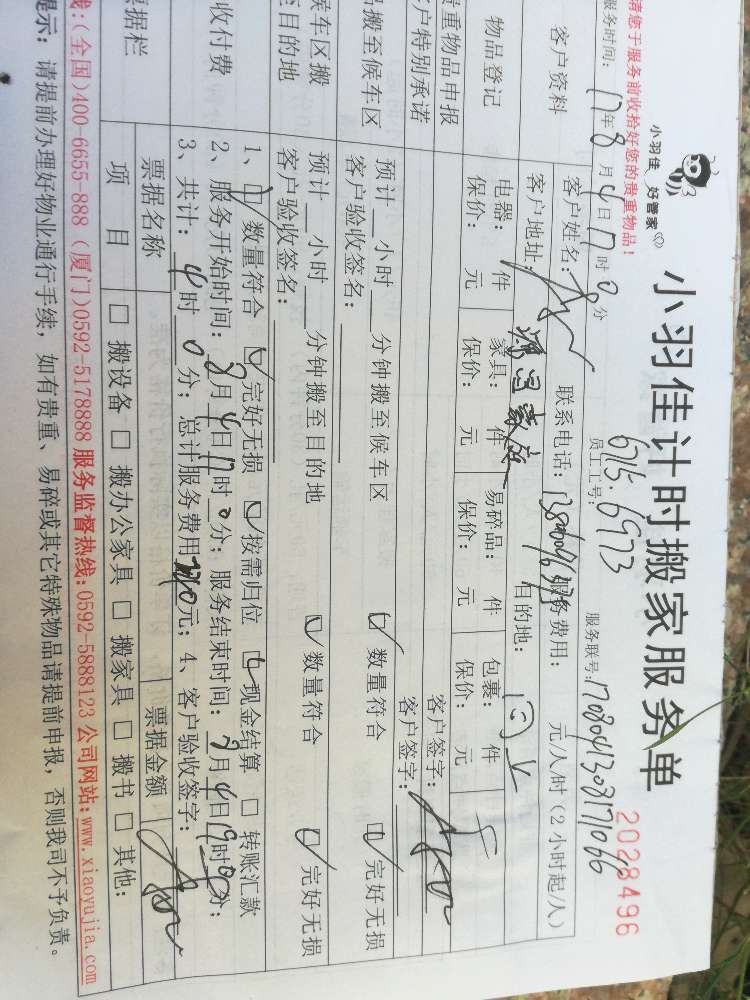 小羽佳 好管家
小羽佳计时搬家服务单
2028496
请您于服务前收拾好您的贵重物品!
员工工号: 6715.6973
服务联号: 1708041308171066
服务时间: 17年8月4日17时0分
客户资料
客户姓名:
联系电话:
服务费用: 元/人/时(2小时起/人)
客户地址:
目的地: 同上
物品登记
电器: 件 家具: 件 易碎品: 件 包裹: 件
保价: 元 保价: 元 保价: 元 保价: 元
贵重物品申报
客户签字:
客户特别承诺
客户签字:
搬至候车区
预计__小时__分钟搬至候车区 ☑数量符合 ☑完好无损
客户验收签名:
候车区搬至目的地
预计__小时__分钟搬至目的地 ☑数量符合 ☑完好无损
客户验收签名:
收付费
1、☑数量符合 ☑完好无损 ☑按需归位 ☑现金结算 □转账汇款
2、服务开始时间: 8月4日17时0分; 服务结束时间: 8月4日19时0分;
3、共计: 4时0分; 总计服务费用 元; 4、客户验收签字:
票据栏
票据名称
票据金额
项目 □搬设备 □搬办公家具 □搬家具 □搬书 □其他:
线:(全国)400-6655-888 (厦门)0592-5178888 服务监督热线:0592-5888123 公司网站:www.xiaoyujia.com
提示: 请提前办理好物业通行手续, 如有贵重、易碎或其它特殊物品请提前申报, 否则我司不予负责。